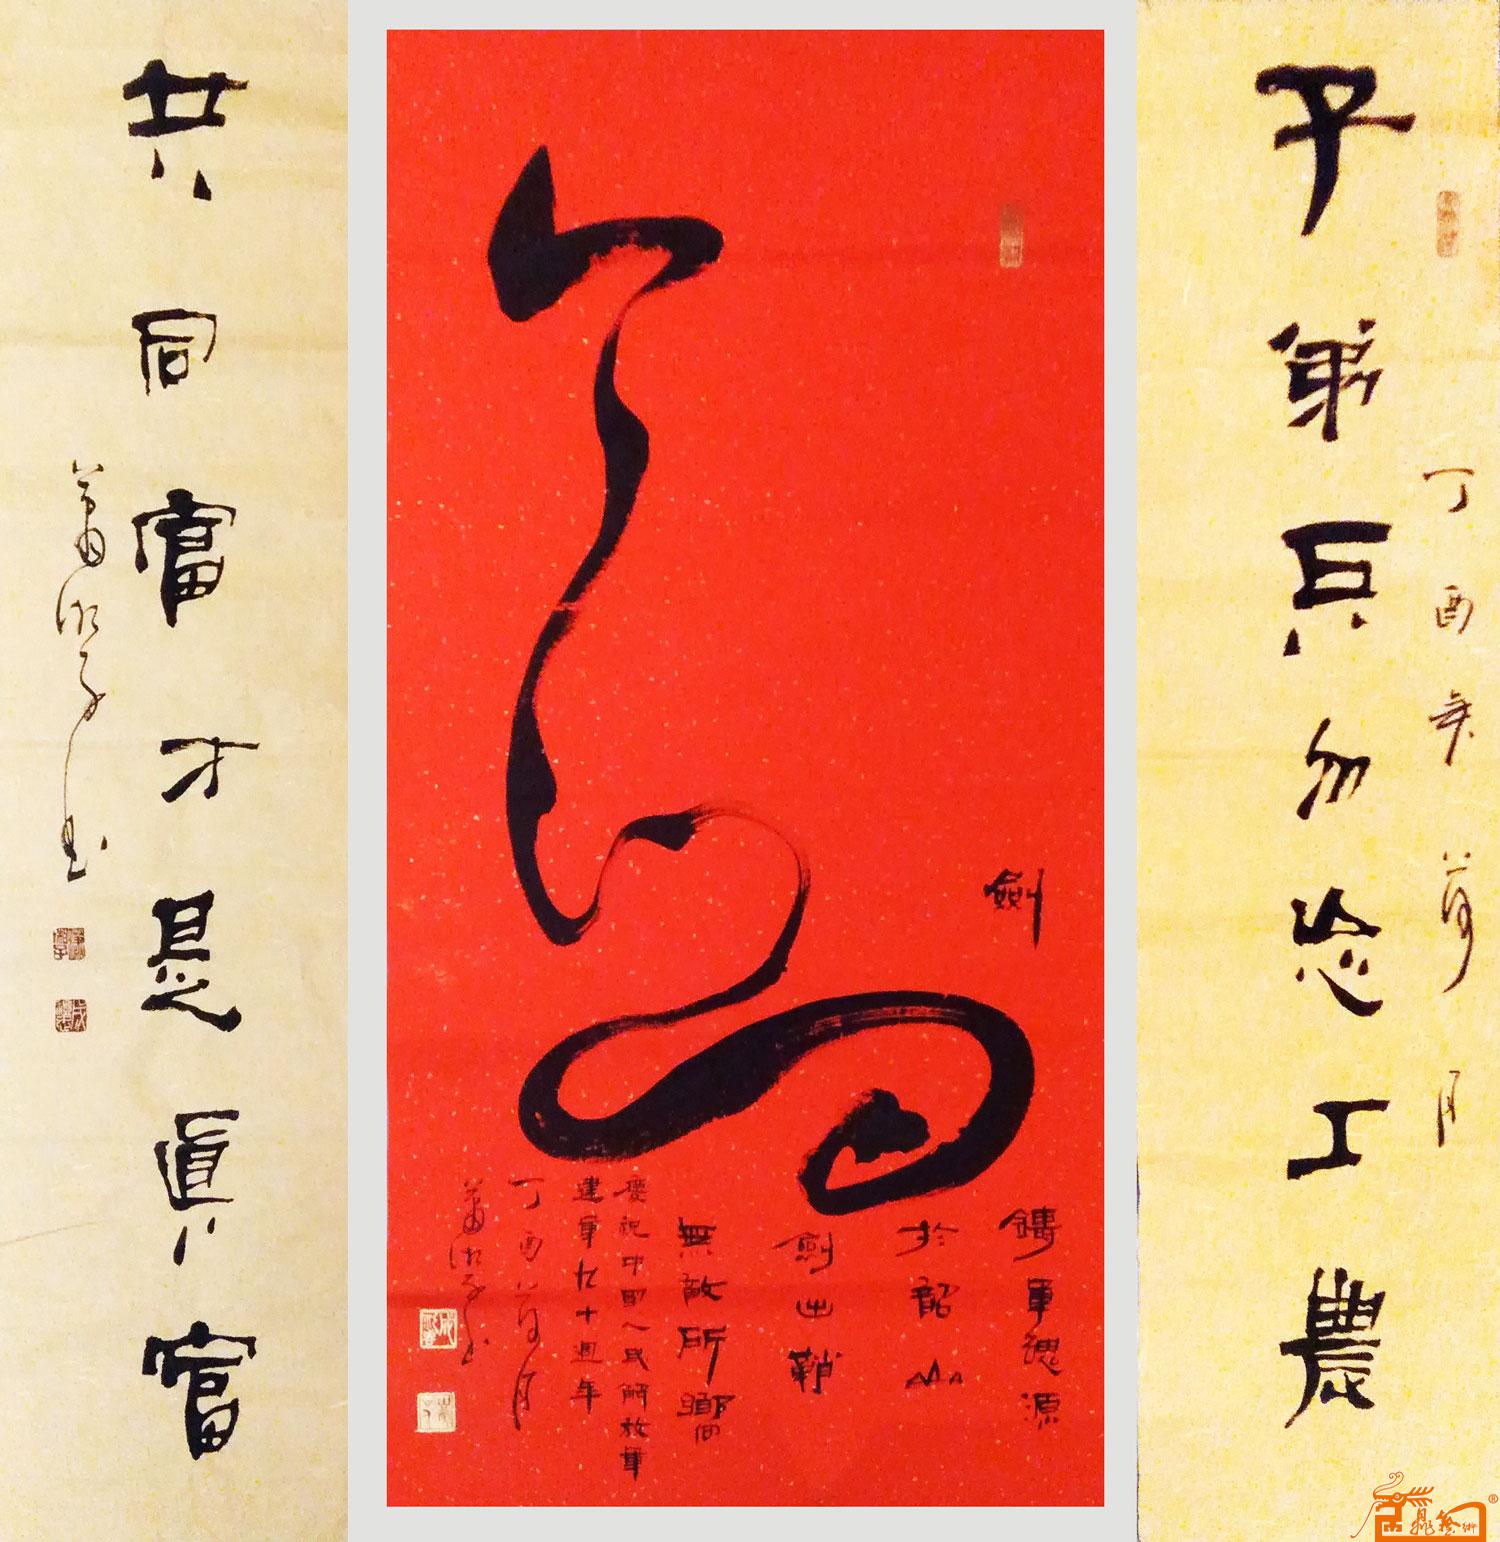 丁酉年荷月
子弟兵勿忘工農
劍
鑄軍魂源
於韶山
劍出鞘
無敵所嚮
慶祝中國人民解放軍
建軍九十週年
丁酉荷月
蕭湘子書
共同富才是真富
蕭湘子書